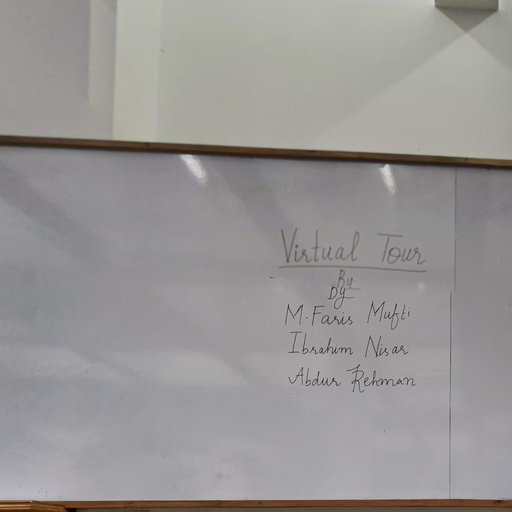 Virtual Tour
By
By
M. Faris Mufti
Ibrahim Nisar
Abdur Rehman